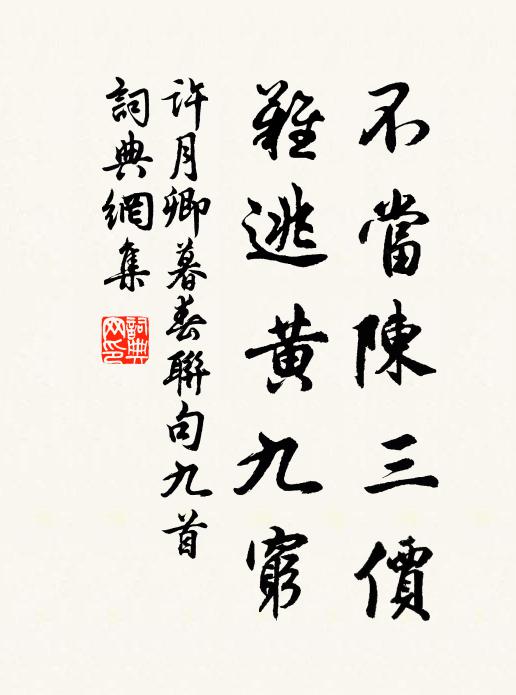 不當陳三價
難逃黃九窮
許月卿暮春聯句九首
詞典網集
詞典網印